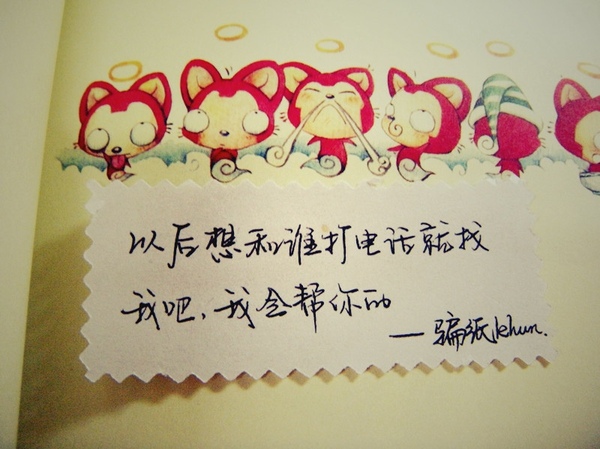 以后想和谁打电话就找
我吧，我会帮你的
—骗纸khun.